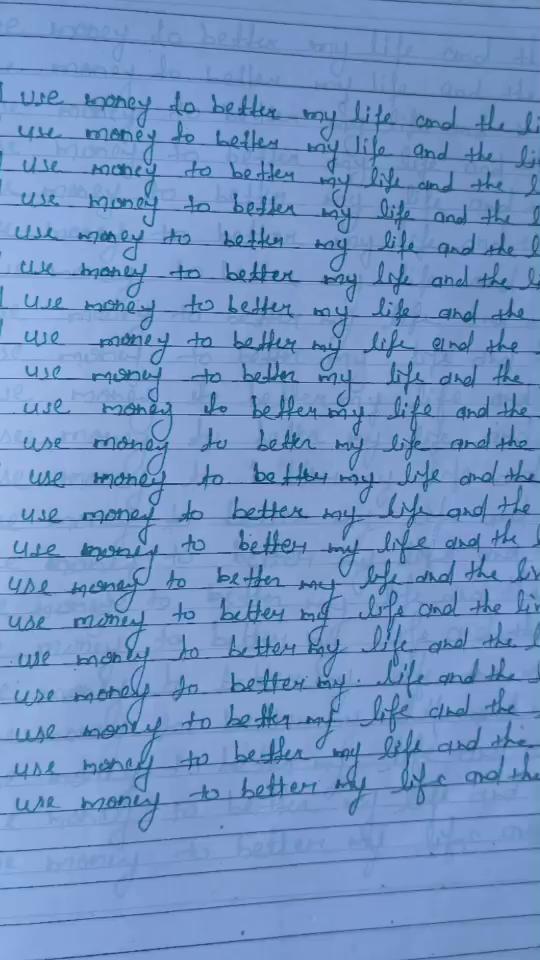 I use money to better my life and the li
use money to better my life and the li
I use money to better my life and the l
use money to better my life and the l
use money to better my life and the l
use money to better my life and the li
I use money to better my life and the
I use money to better my life and the
use money to better my life and the
use money to better my life and the
use money to better my life and the
use money to better my life and the
use money to better my life and the
use money to better my life and the l
use money to better my life and the liv
use money to better my life and the liv
use money to better my life and the l
use money to better my life and the
use money to better my life and the
use money to better my life and the
use money to better my life and the